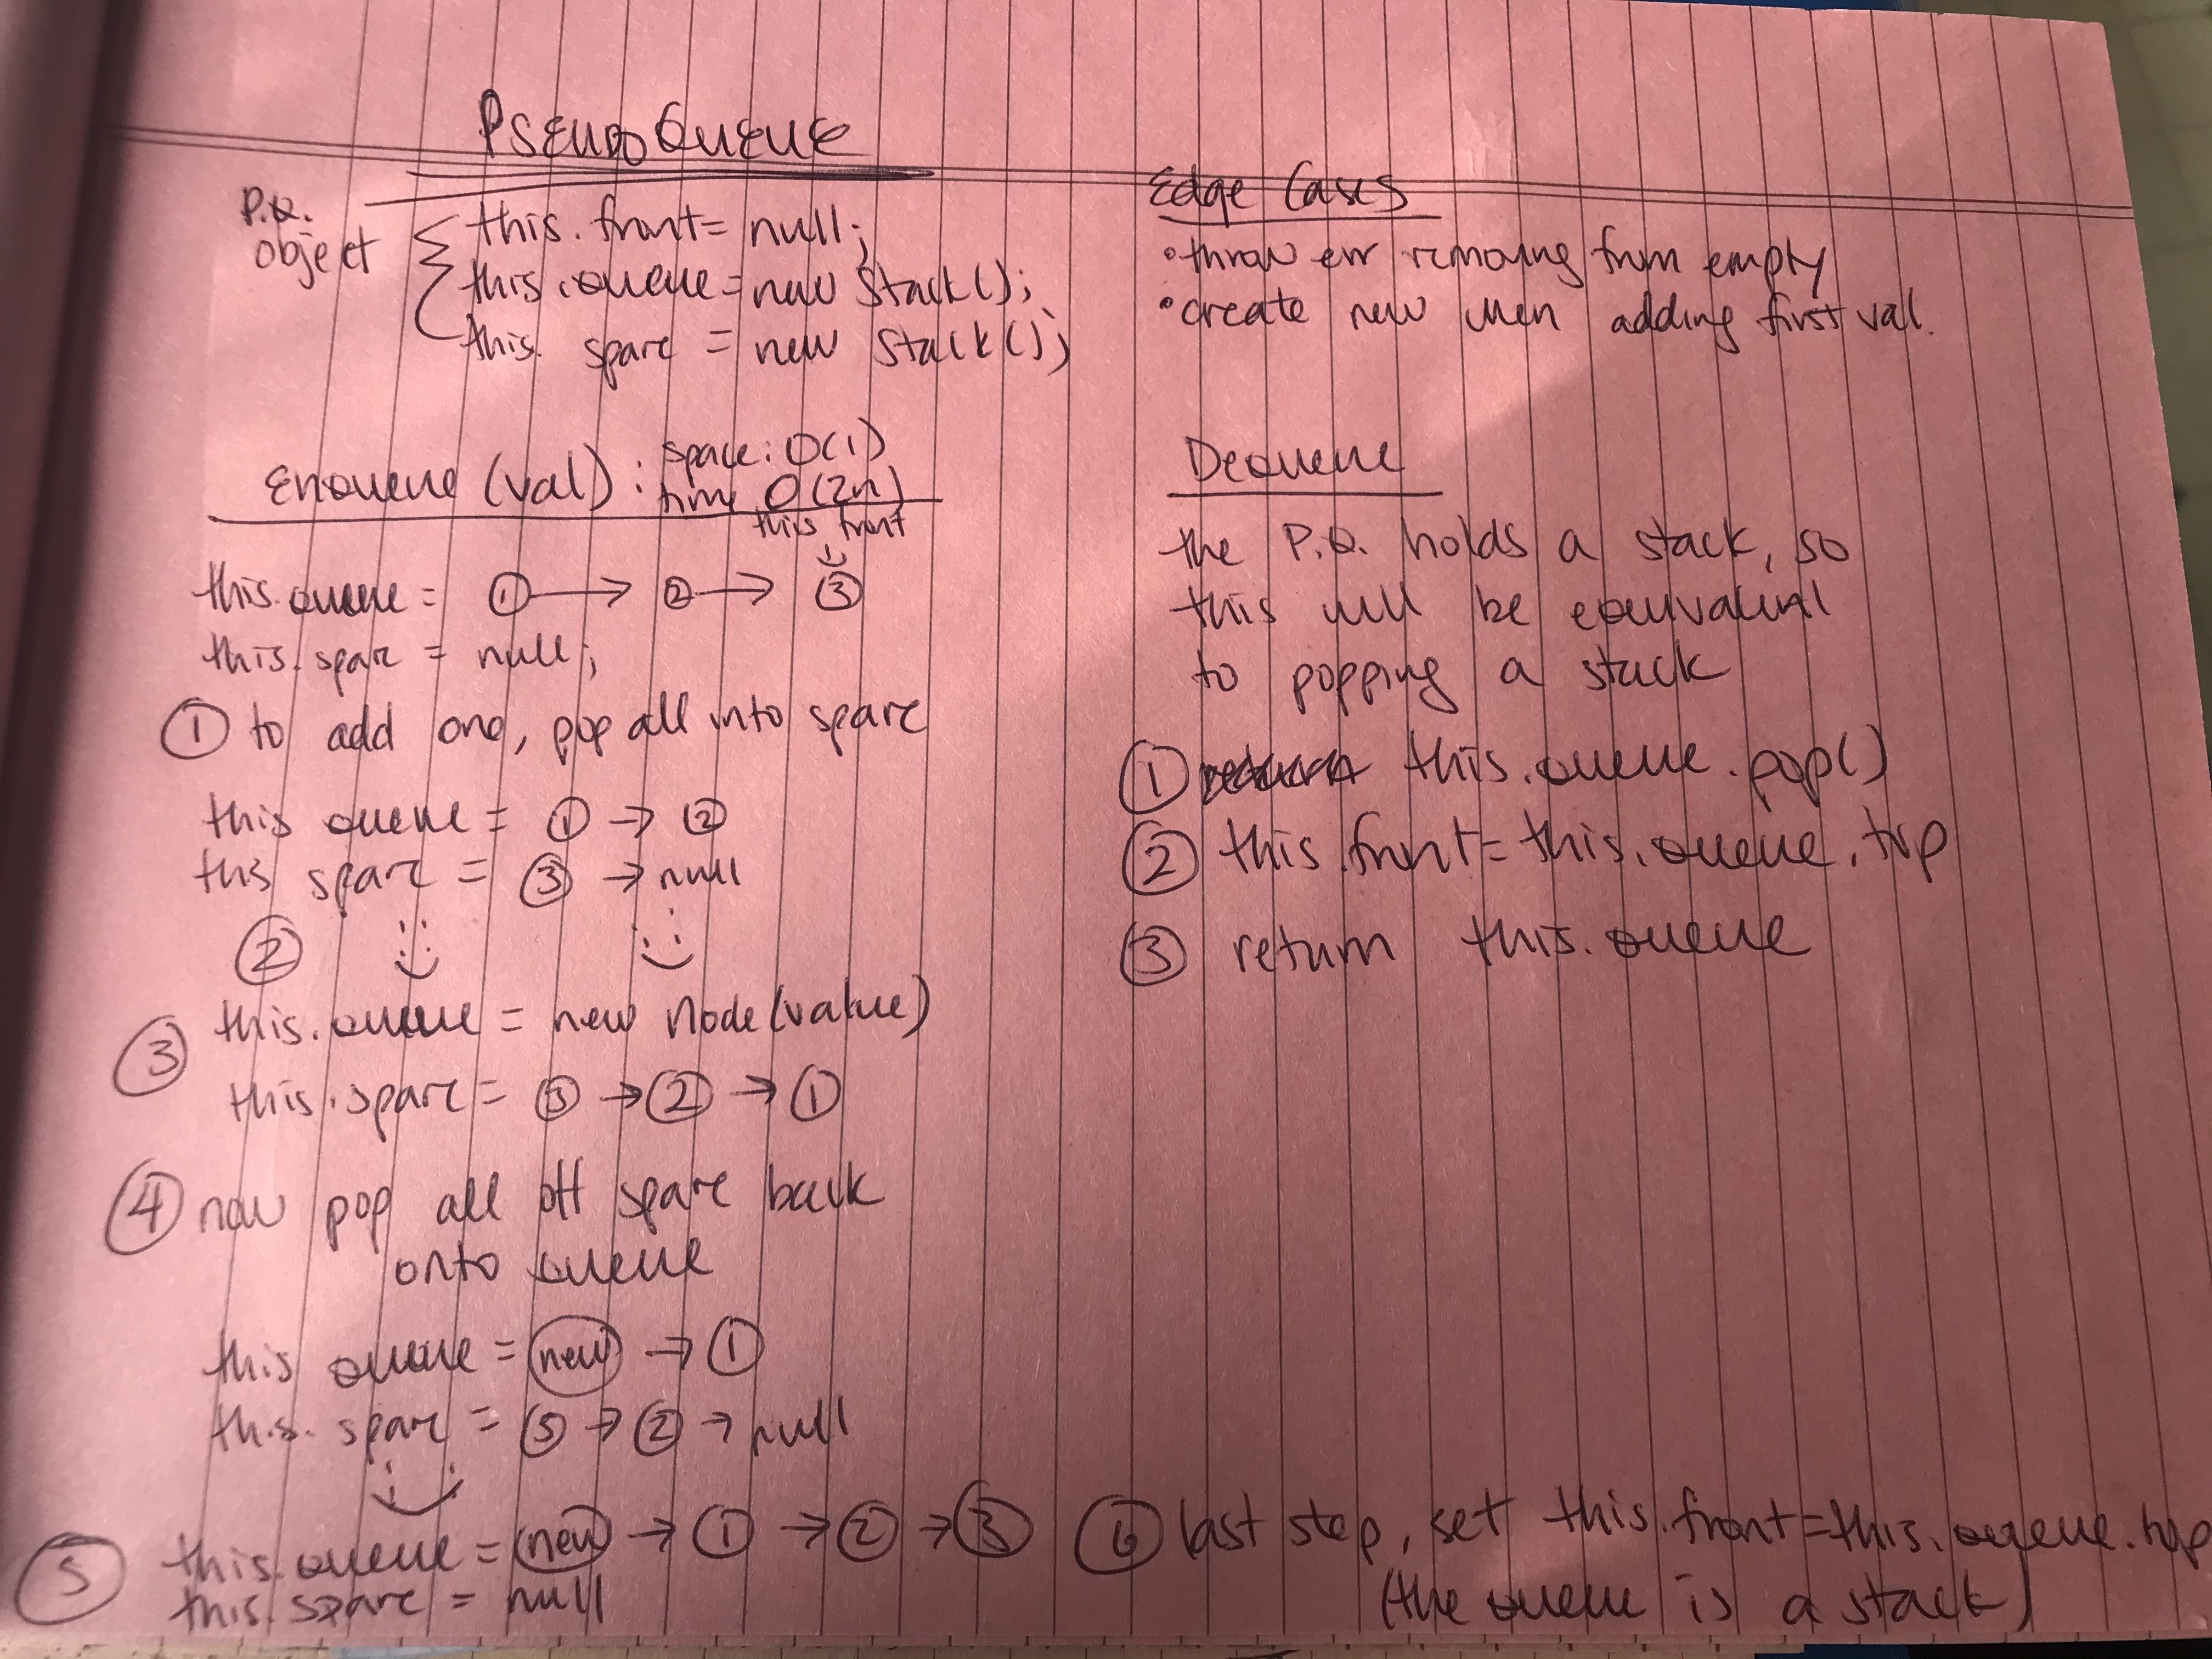 PSEUDOQUEUE
P.Q.
object
this.front = null;
this.queue = new Stack();
this. spare = new Stack();
Enqueue (val) : space: O(1)
time O(2n)
this front
this.queue = ① → ② → ③
this.spare = null;
① to add one, pop all into spare
this queue = ① → ②
this spare = ③ → null
②
③ this.queue = new Node(value)
this.spare = ③ → ② → ①
④ now pop all off spare back
onto queue
this queue = new → ①
this. spare = ③ → ② → null
⑤ this.queue = new → ① → ② → ③
this.spare = null
Edge Cases
• throw err removing from empty
• create new when adding first val.
Dequeue
the P.Q. holds a stack, so
this will be equivalent
to popping a stack
① return this.queue.pop()
② this.front = this.queue.top
③ return this.queue
⑥ last step, set this.front = this.queue.top
(the queue is a stack)